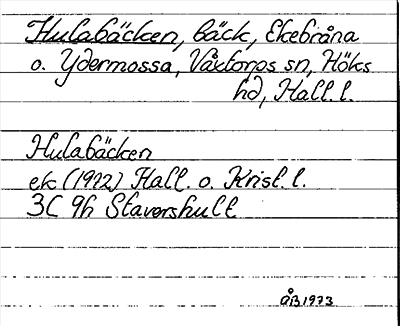 Hulabäcken, bäck, Ekebråna
o. Ydermossa, Våxtorps sn, Höks
hd, Hall. l.
Hulabäcken
ek (1972) Hall. o. Krist. l.
3C 9h Stavershult
ÅB 1973